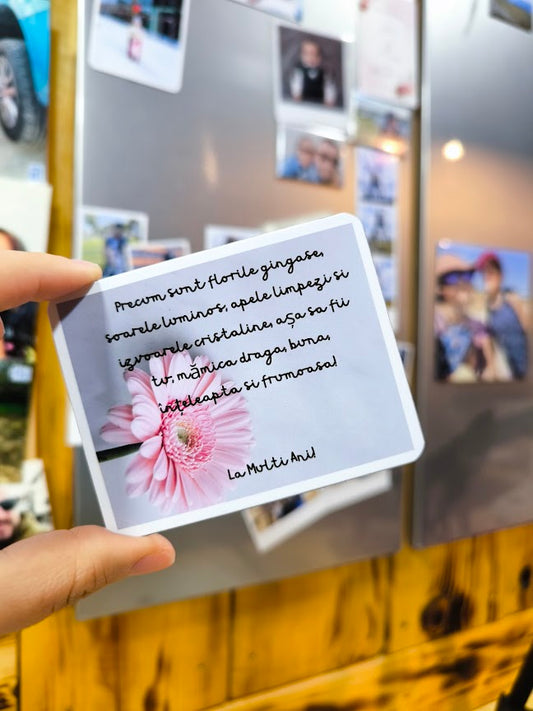 Precum sunt florile gingase,
soarele luminos, apele limpezi si
izvoarele cristaline, așa sa fii
tu, mămica draga, buna,
înțeleapta si frumoasa!
La Multi Ani!